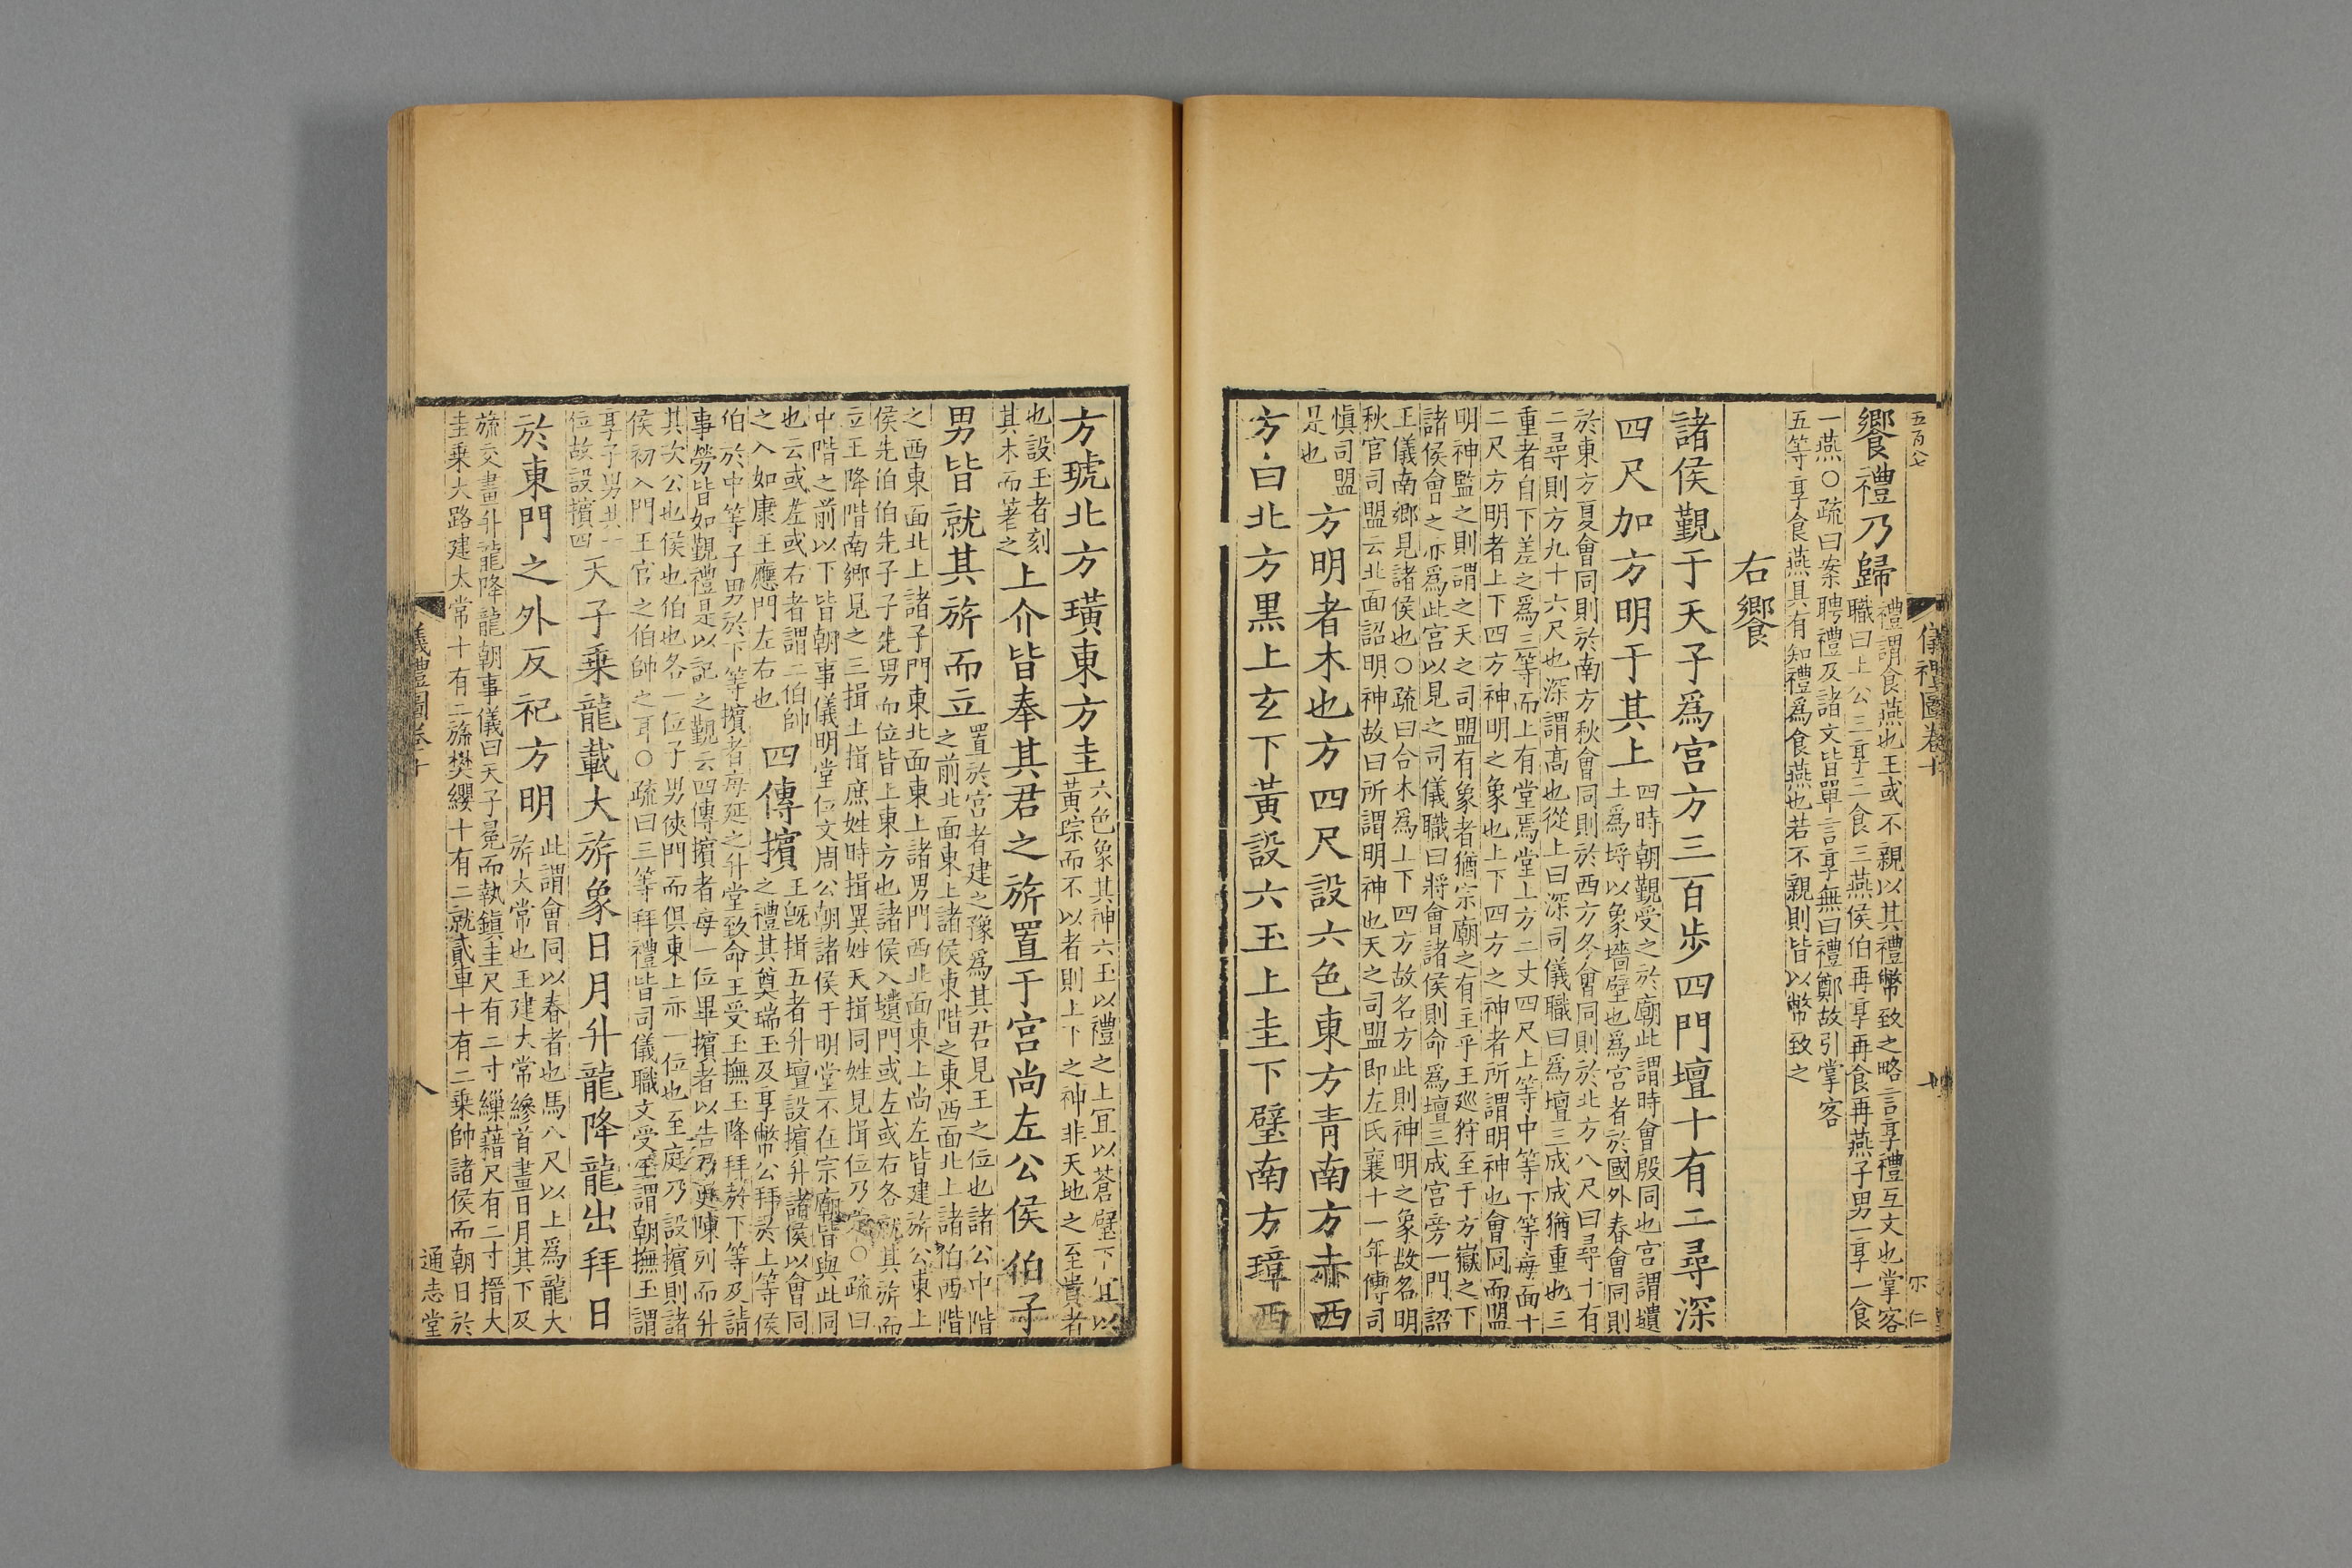 五百八七
儀禮圖卷十
仁
饗禮乃歸
禮謂食燕也王或不親以其禮幣致之略言享禮互文也掌客
職曰上公三享三食三燕侯伯再享再食再燕子男一享一食
一燕○疏曰案聘禮及諸文皆單言享無曰禮鄭故引掌客
五等享食燕具有知禮爲食燕也若不親則皆以幣致之
右饗
諸侯覲于天子爲宫方三百步四門壇十有二尋深
四尺加方明于其上
四時朝覲受之於廟此謂時會殷同也宫謂壝
土爲埒以象墻壁也爲宫者於國外春會同則
於東方夏會同則於南方秋會同則於西方冬會同則於北方八尺曰尋十有
二尋則方九十六尺也深謂高也從上曰深司儀職曰爲壇三成成猶重也三
重者自下差之爲三等而上有堂焉堂上方二丈四尺上等中等下等每面十
二尺方明者上下四方神明之象也上下四方之神者所謂明神也會同而盟
明神監之則謂之天之司盟有象者猶宗廟之有主乎王廵狩至于方嶽之下
諸侯會之亦爲此宫以見之司儀職曰將會諸侯則命爲壇三成宫旁一門詔
王儀南郷見諸侯也○疏曰合木爲上下四方故名方此則神明之象故名明
秋官司盟云北面詔明神故曰所謂明神也天之司盟即左氏襄十一年傳司
慎司盟
是也
方明者木也方四尺設六色東方青南方赤西
方白北方黑上玄下黃設六玉上圭下璧南方璋西
方琥北方璜東方圭
六色象其神六玉以禮之上宜以蒼璧下宜以
黃琮而不以者則上下之神非天地之至貴者
也設玉者刻
其木而著之
上介皆奉其君之旂置于宫尚左公侯伯子
男皆就其旂而立
置於宫者建之豫爲其君見王之位也諸公中階
之前北面東上諸侯東階之東西面北上諸伯西階
之西東面北上諸子門東北面東上諸男門西北面東上尚左皆建旂公東上
侯先伯伯先子子先男而位皆上東方也諸侯入壝門或左或右各就其旂而
立王降階南郷見之三揖土揖庶姓時揖異姓天揖同姓見揖位乃定○疏曰
中階之前以下皆朝事儀明堂位文周公朝諸侯于明堂不在宗廟皆與此同
也云或左或右者謂二伯帥
之入如康王應門左右也
四傳擯
王旣揖五者升壇設擯升諸侯以會同
之禮其奠瑞玉及享幣公拜於上等侯
伯於中等子男於下等擯者每延之升堂致命王受玉撫玉降拜於下等及請
事勞皆如覲禮是以記之覲云四傳擯者每一位畢擯者以告乃更陳列而升
其次公也侯也伯也各一位子男俠門而俱東上亦一位也至庭乃設擯則諸
侯初入門王官之伯帥之耳○疏曰三等拜禮皆司儀職文受玉謂朝撫玉謂
享子男共一
位故設擯四
天子乘龍載大旂象日月升龍降龍出拜日
於東門之外反祀方明
此謂會同以春者也馬八尺以上爲龍大
旂大常也王建大常縿首畫日月其下及
旒交畫升龍降龍朝事儀曰天子冕而執鎮圭尺有二寸繅藉尺有二寸搢大
圭乘大路建太常十有二旒樊纓十有二就貳車十有二乘帥諸侯而朝日於
儀禮圖卷十
八
通志堂